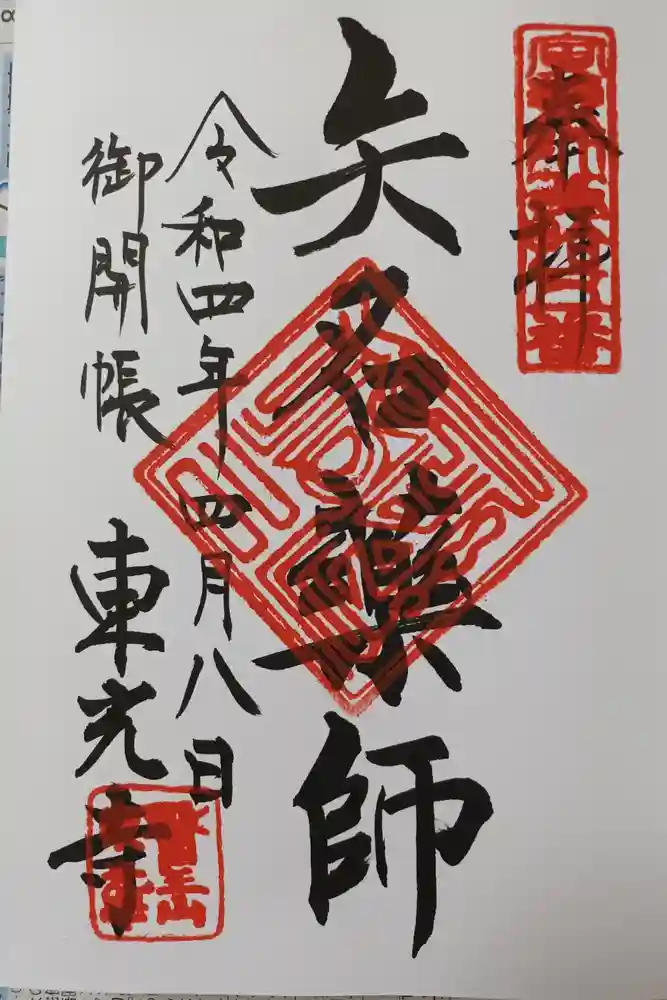 奉拝
矢名薬師
令和四年四月八日
御開帳
東光寺